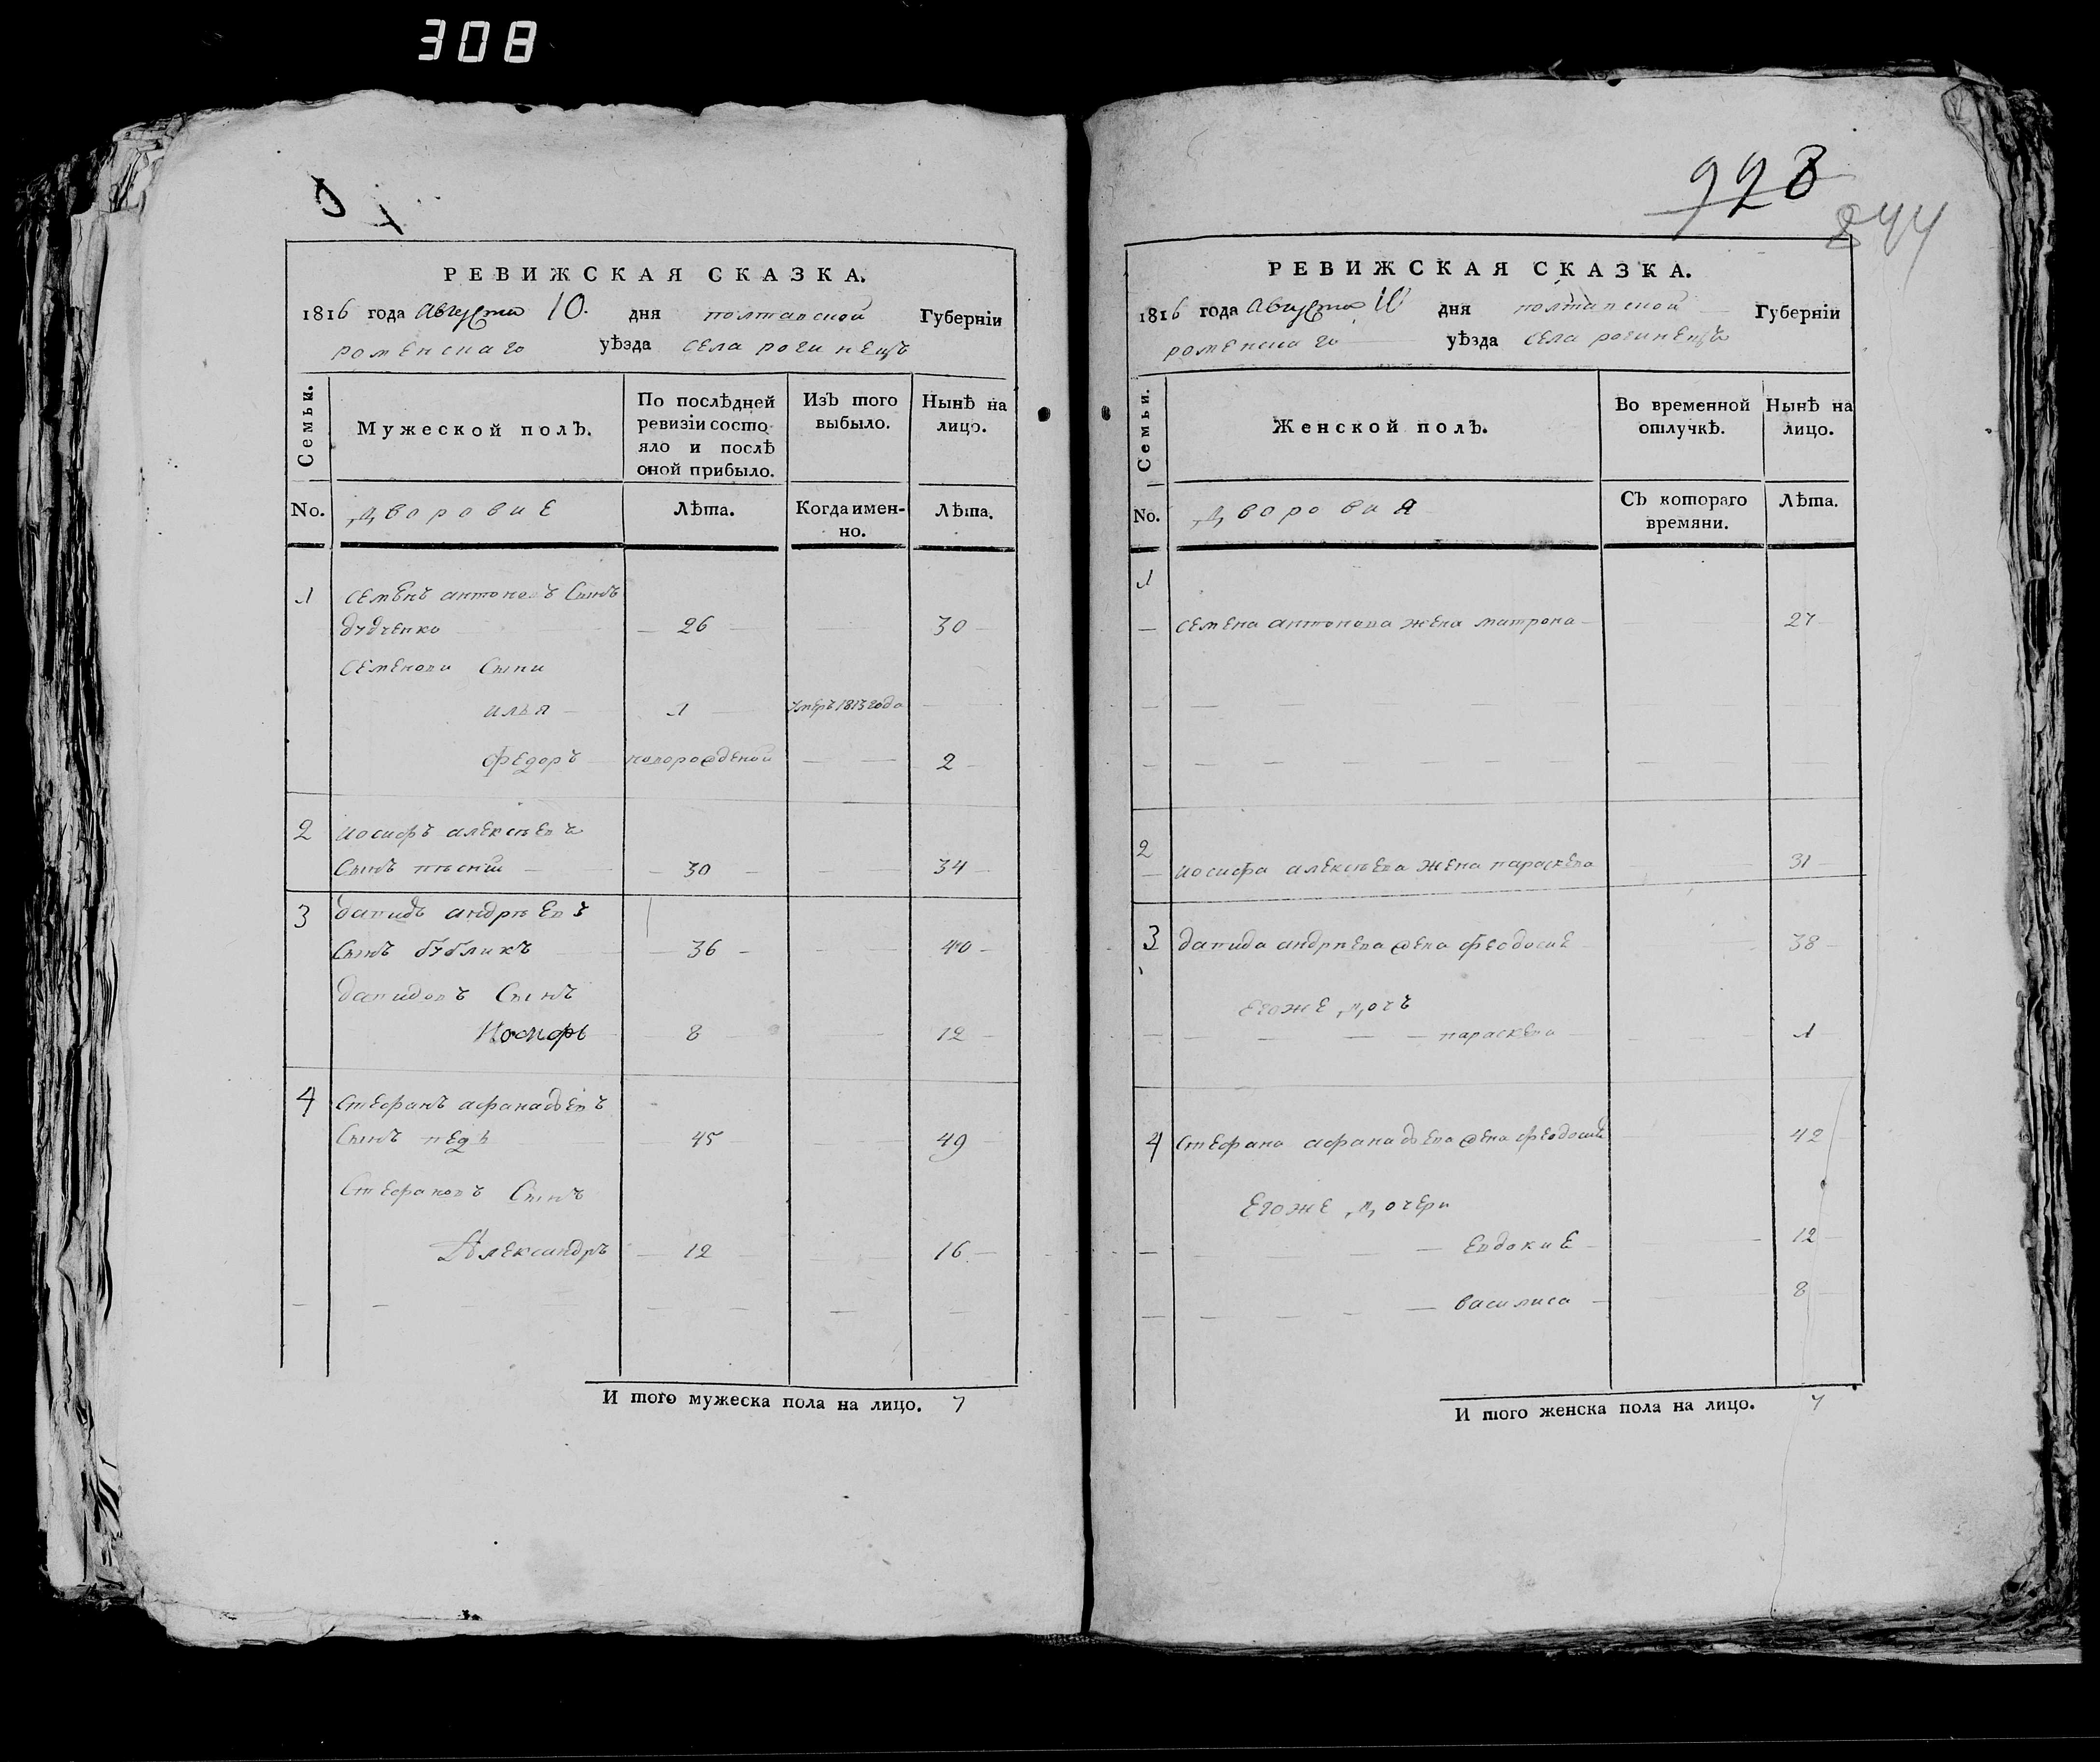 308
РЕВИЖСКАЯ СКАЗКА.
1816 года Августа 10. дня полтавской Губерніи
роменскаго уѣзда села рогинецъ
Семьи.
Мужеской полъ.
По послѣдней ревизіи состояло и послѣ оной прибыло.
Изъ того выбыло.
Нынѣ на лицо.
No. дворовие Лѣта. Когда именно. Лѣта.
1 семенъ антоновъ Сынъ
дудченко 26 30
семенови Сыни
илья 1 умеръ 1813 года
федоръ новорожденой 2
2 иосифъ алексѣевъ
Сынъ 30 34
3 давидъ андрѣевъ
Сынъ бубликъ 36 40
давидовъ Сынъ
Иосифъ 8 12
4 стефанъ афанасьевъ
Сынъ 45 49
Стефановъ Сынъ
Александръ 12 16
И того мужеска пола на лицо. 7
928
844
РЕВИЖСКАЯ СКАЗКА.
1816 года Августа 10 дня полтавской Губерніи
роменскаго уѣзда села рогинецъ
Семьи.
Женской полъ.
Во временной отлучкѣ.
Нынѣ на лицо.
No. дворовия Съ котораго времяни. Лѣта.
1
семена антонова жена матрона 27
2
иосифа алексѣева жена параскева 31
3 давида андрѣева жена феодосие 38
Егоже дочъ
параскева 1
4 Стефана афанасьева жена феодосие 42
Егоже дочери
Евдокие 12
василиса 8
И того женска пола на лицо. 7